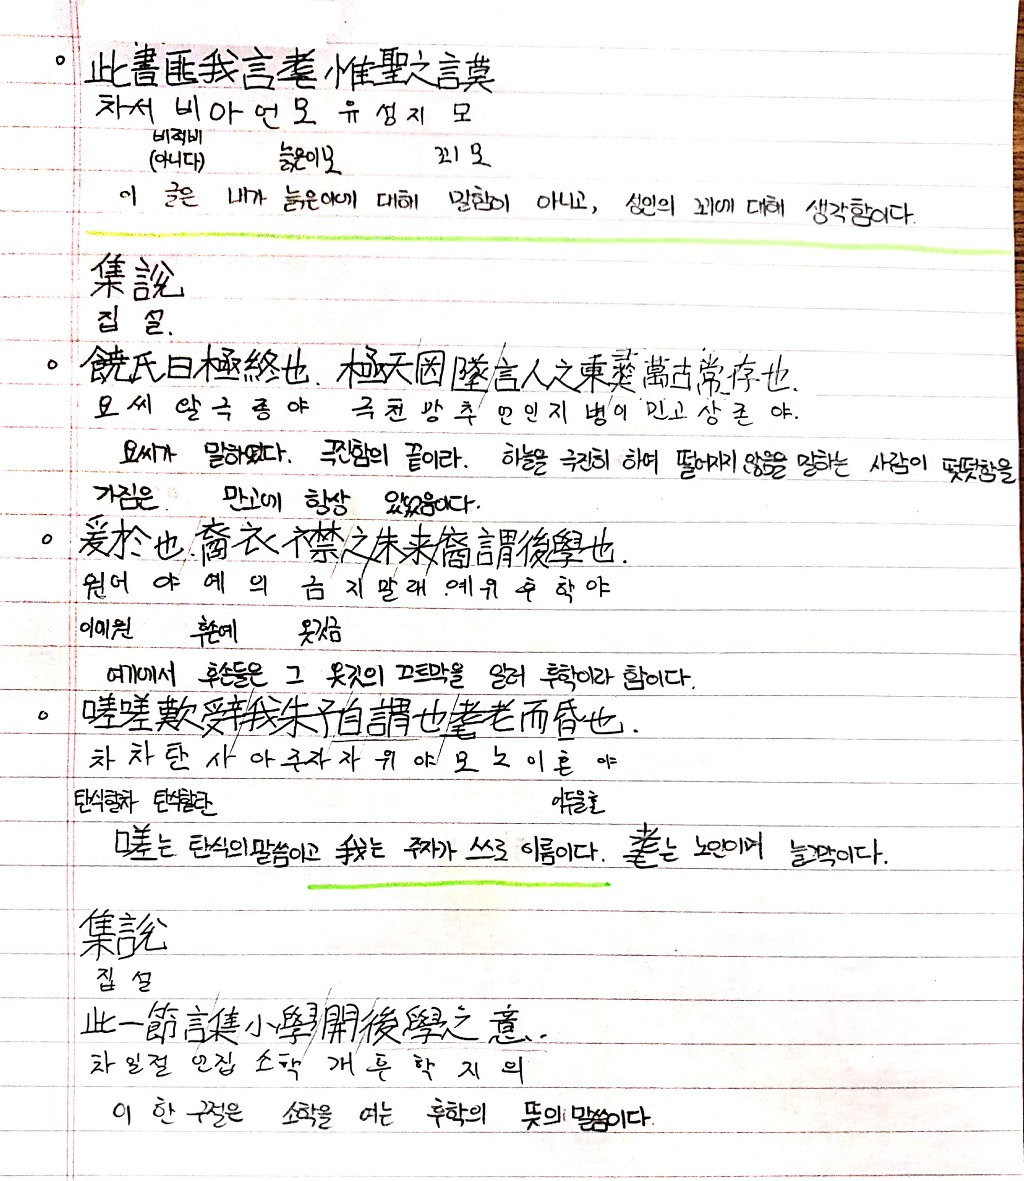 此書匪我言耄 惟聖之言莫
차서 비아 언 모 유 성지 모
비적비
(아니다) 늙은이모 꾀 모
이 글은 내가 늙은이에 대해 말함이 아니고, 성인의 꾀에 대해 생각함이다.
集說
집 설.
饒氏曰極終也. 極天罔墜言人之東彛萬古常存也.
요 씨 왈 극 종 야 극 천 망 추 언 인 지 병 이 만 고 상 존 야.
요씨가 말하였다. 극진함의 끝이라. 하늘을 극진히 하여 떨어지지 않음을 말하는 사람이 떳떳함을
가짐은 만고에 항상 있었음이다.
爰於也.裔衣衤禁之末来裔謂後學也.
원어 야 예 의 금 지 말 래 예 위 후 학 야
이에원 후손예 옷깃금
여기에서 후손들은 그 옷깃의 끄트막을 일러 후학이라 함이다.
嗟嗟歎辞我朱子自謂也耄老而昏也.
차 차 탄 사 아 주자 자 위 야 모 노 이 혼 야
탄식할차 탄식할탄 어두울혼
嗟는 탄식의 말씀이고 我는 주자가 스스로 이름이다. 耄는 노인이며 늙그막이다.
集說
집 설
此一節言集小學開後學之意.
차 일절 언집 소학 개 후 학 지 의
이 한 구절은 소학을 여는 후학의 뜻의 말씀이다